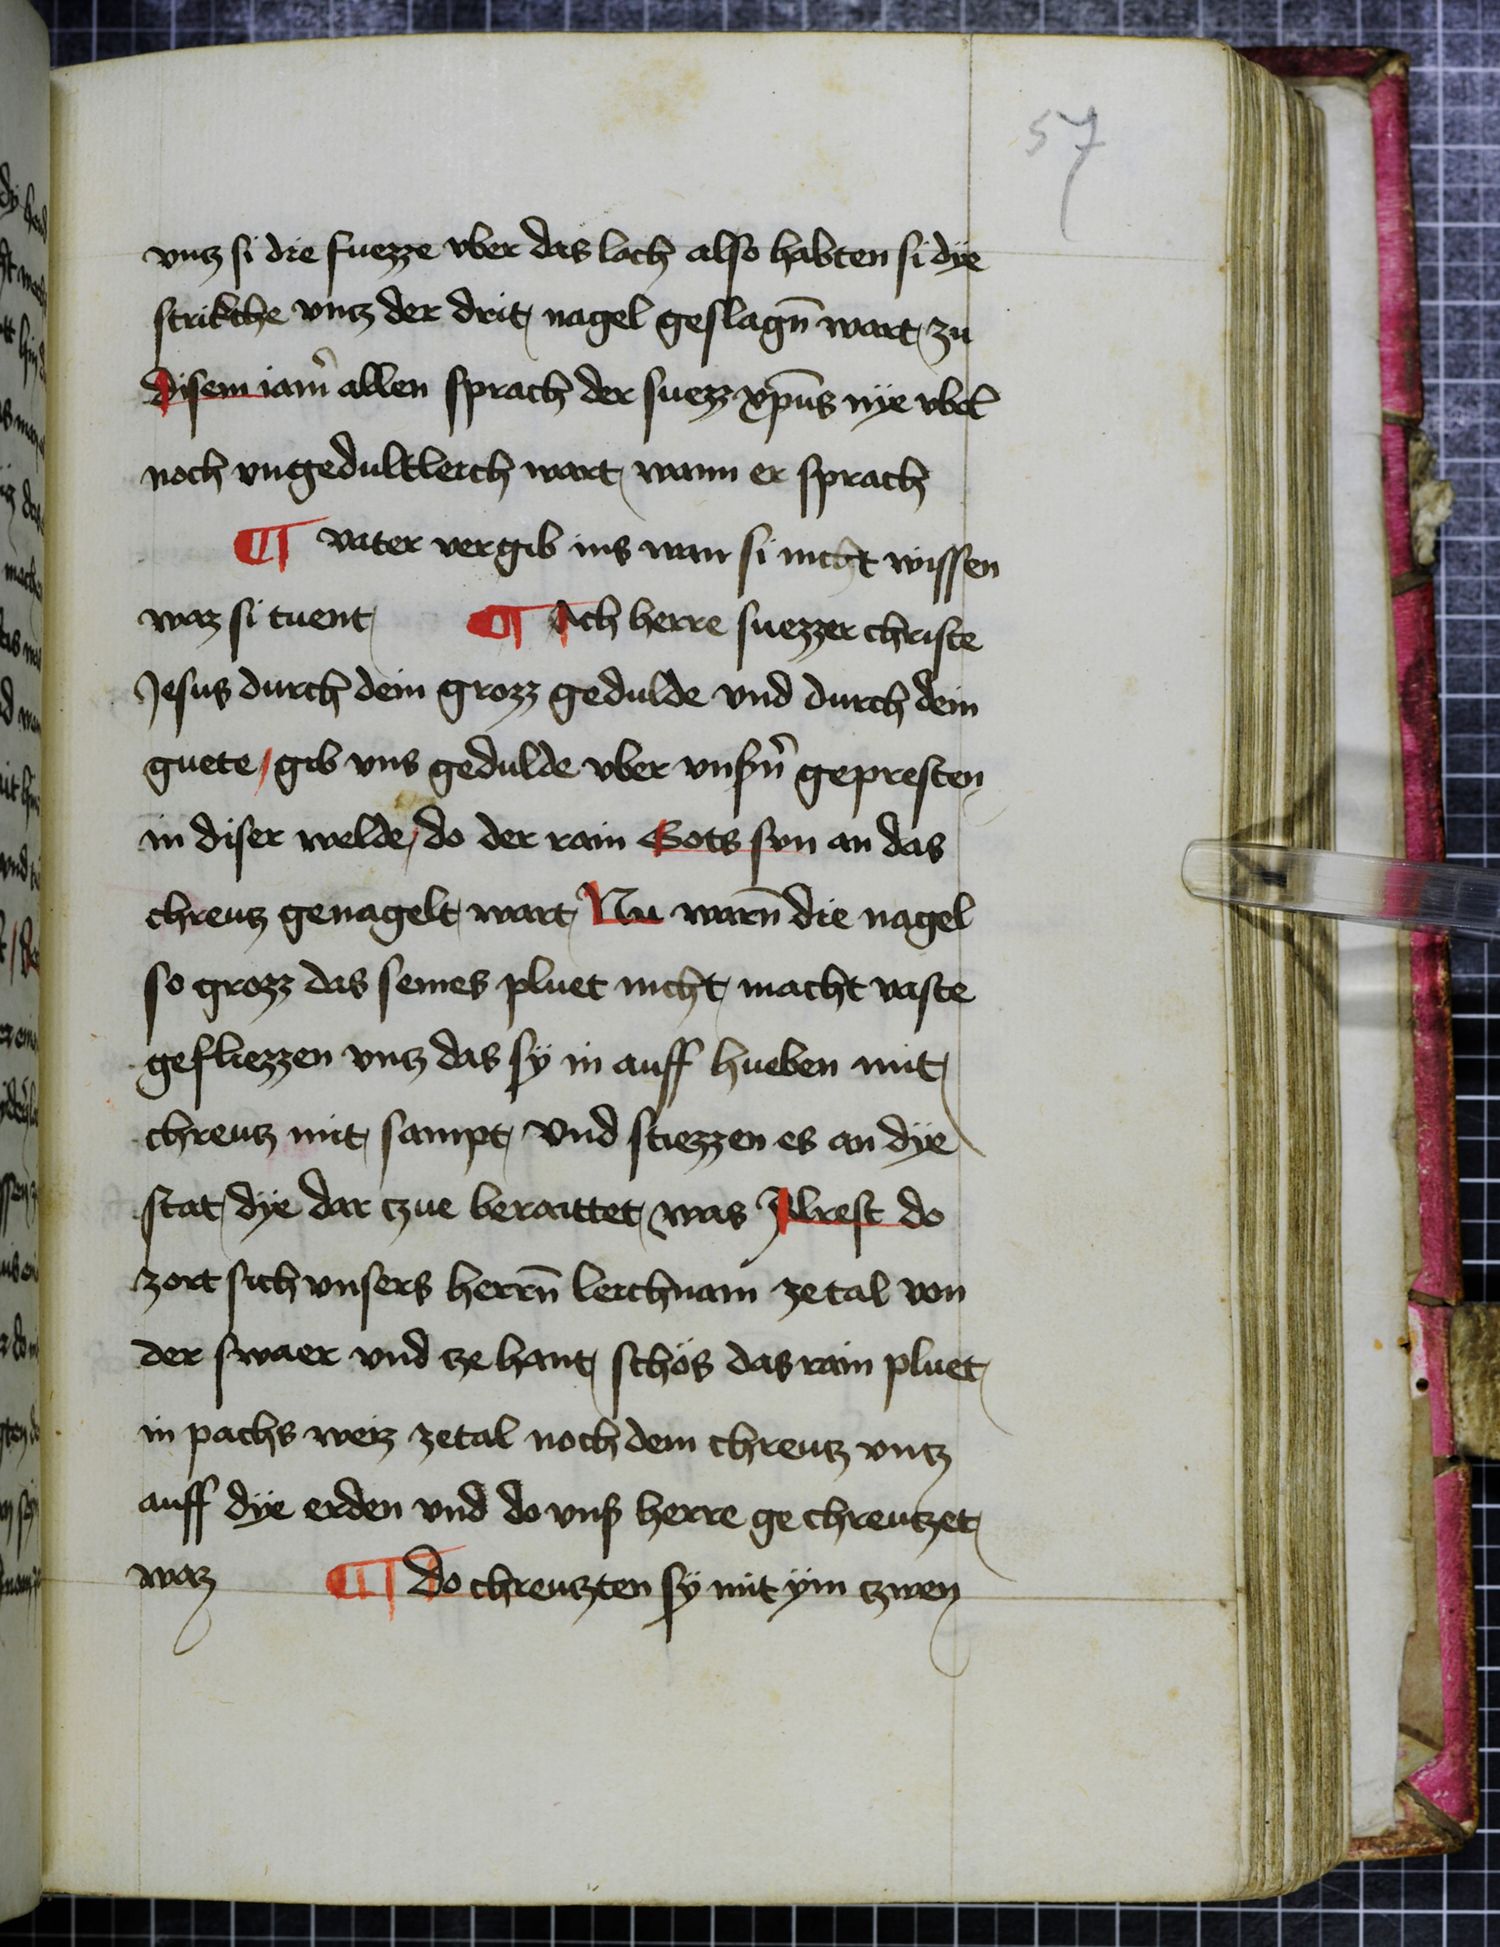 57
vntz si die fuezze vber das loch also habten si dÿe
strikche vntz der drit nagel geslagn̄ wart zu
disem iam̄ allen sprach der suezz xp̄us nÿe vbel
noch vngedultleich wart wann er sprach
¶ vater vergib ins wan si nicht wissen
waz si tuent ¶ Ach herre suezzer christe
Jesus durch dein grozz gedulde vnd durch dein
guete / gib vns gedulde vber vnsn̄ gepresten
in diser welde / do der rain Gots svn an das
chreutz genagelt wart Nu warn̄ die nagel
so grozz das seines pluet nicht macht vaste
gefliezzen vntz das sÿ in auff hueben mit
chreutz mit sampt Vnd stiezzen es an dÿe
stat dÿe dar tzue beraittet was Alrest do
zort sich vnsers herrn̄ leichnam zetal von
der swaer vnd tze hant schös das rain pluet
in pachs weiz zetal noch dem chreutz vntz
auff dÿe erden vnd do vnß herre ge chreutzet
waz ¶ do chreutzten sÿ mit ÿm tzwen